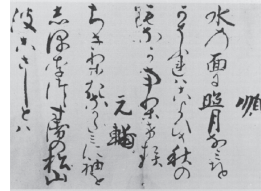 順
水の面に照月なみを
かそふれはこよひそ秋の
なりける
元輔
ちきりきなかたみに袖を
しほりつゝ末の松山
波こさしとは